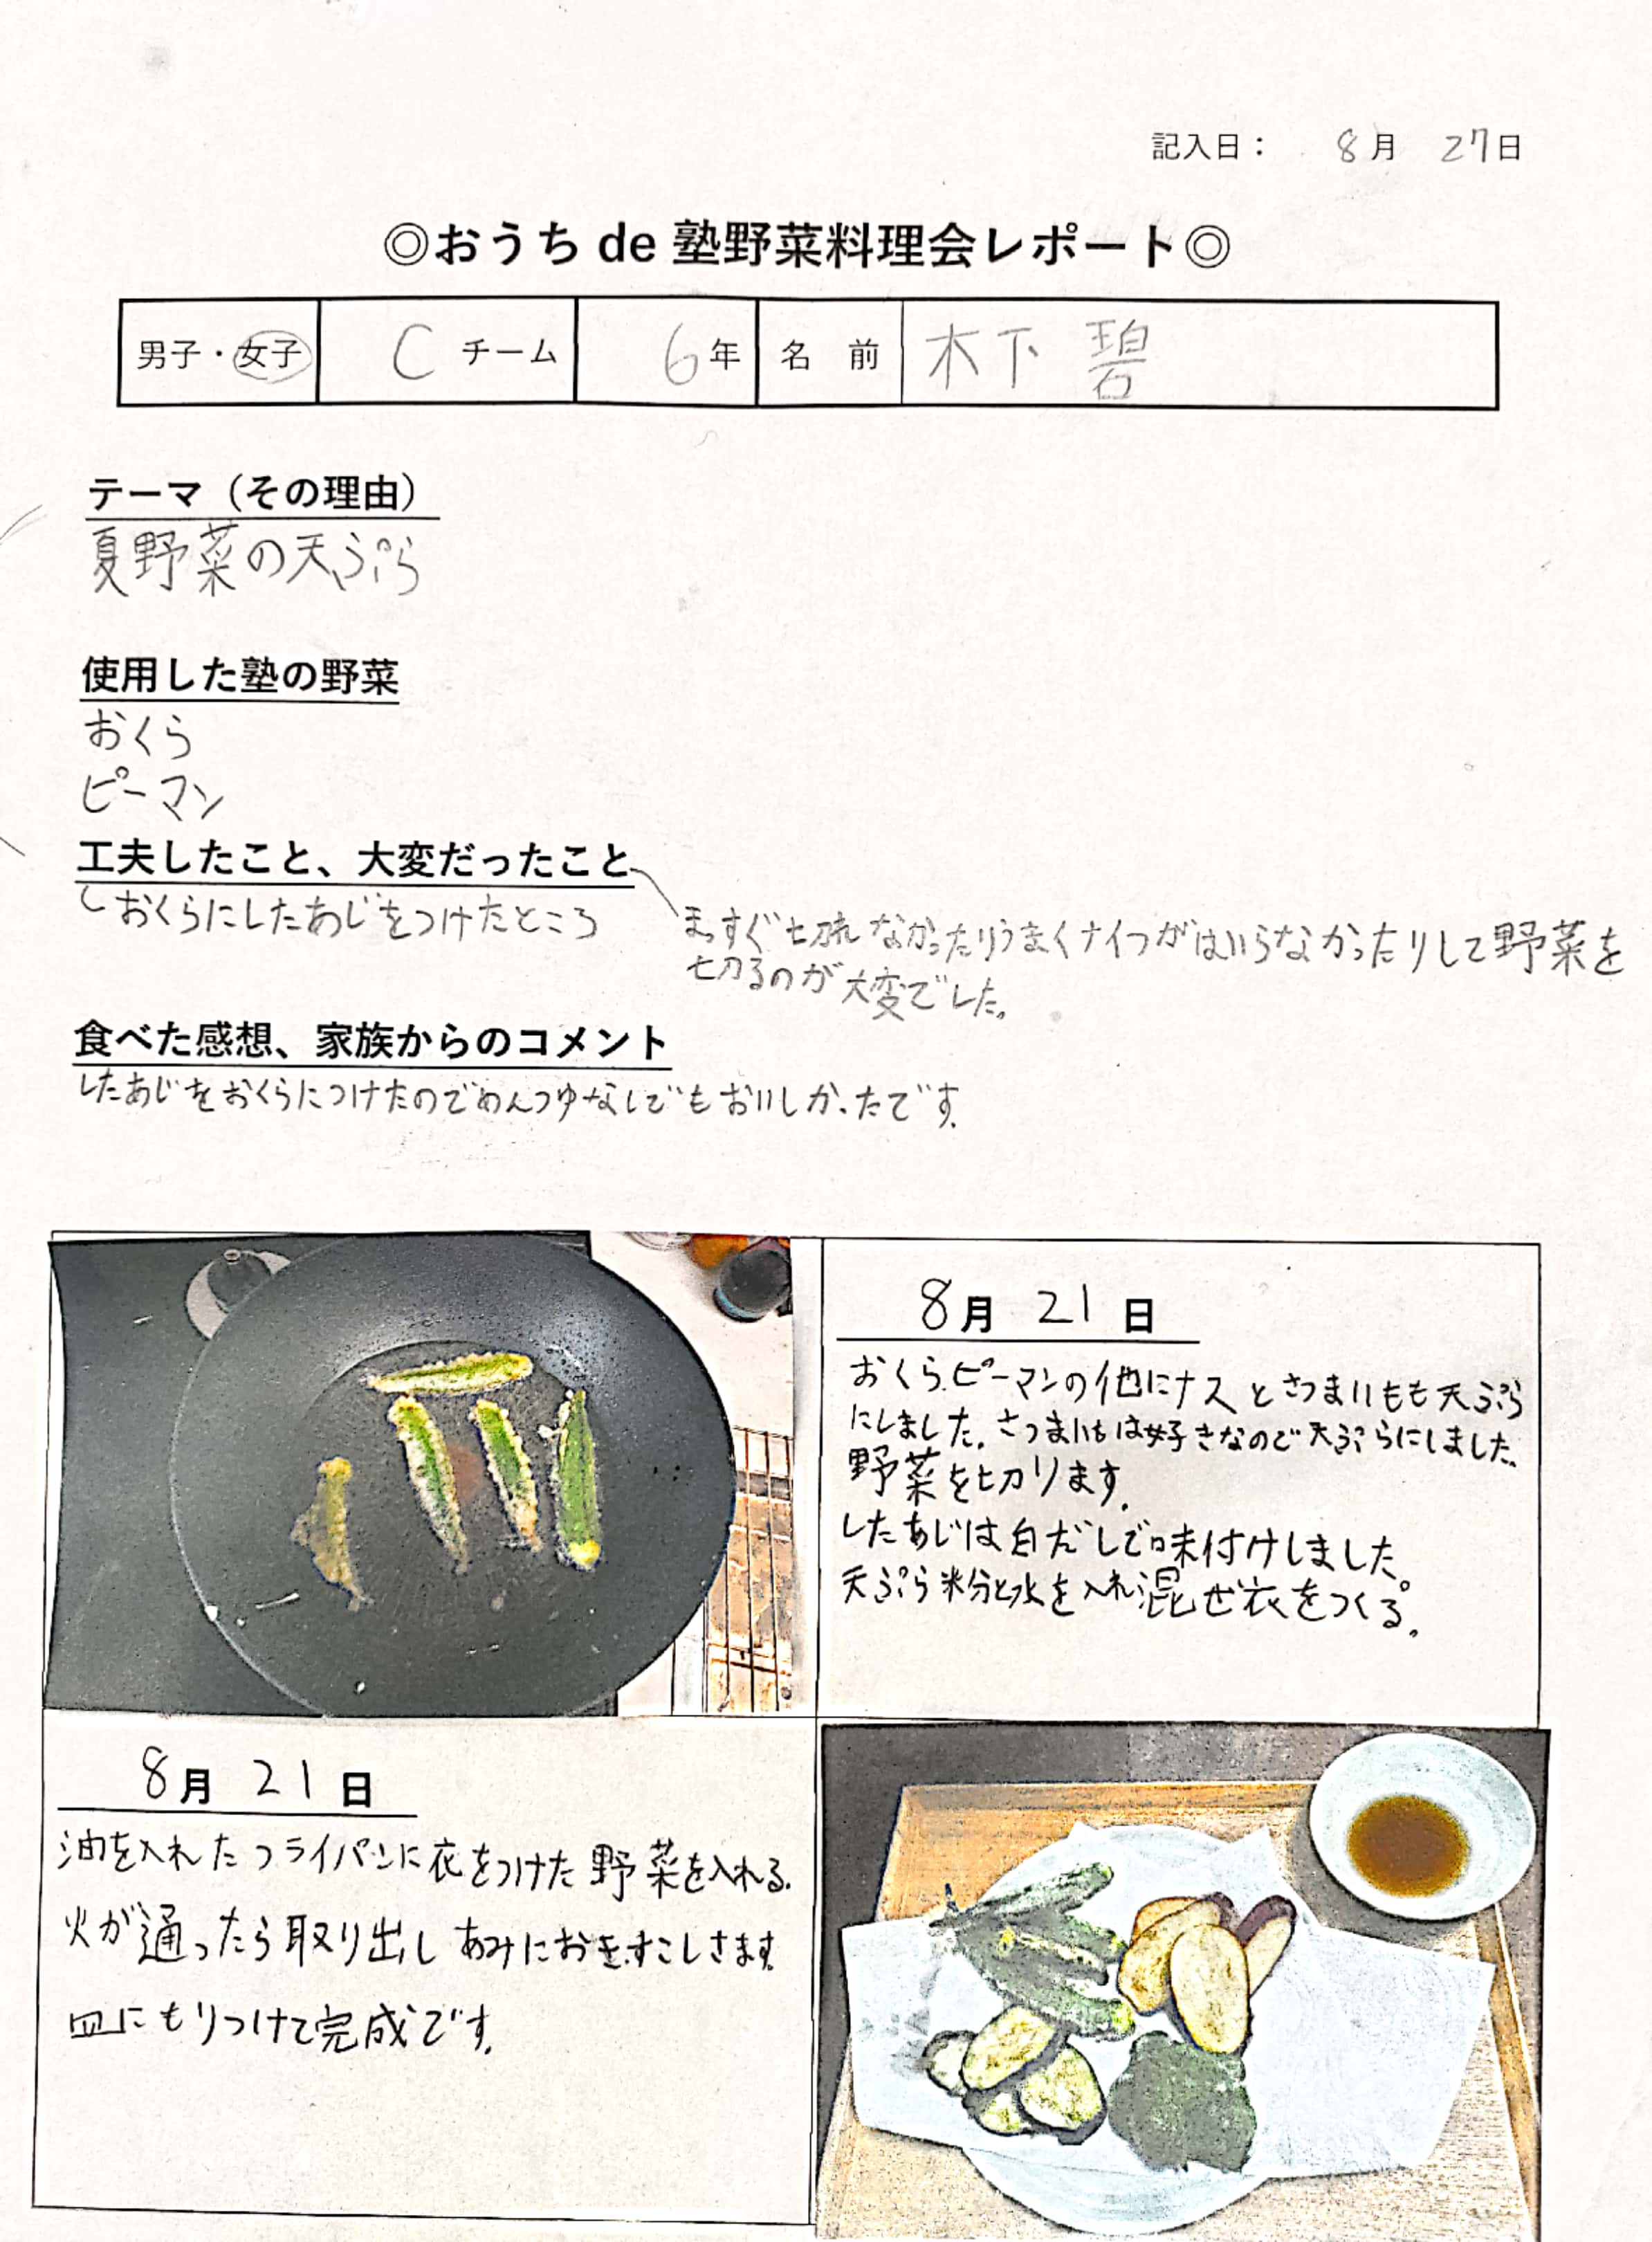 記入日： 8月 27日
◎おうち de 塾野菜料理会レポート◎
男子・女子 C チーム 6年 名 前 木下 碧
テーマ（その理由）
夏野菜の天ぷら
使用した塾の野菜
おくら
ピーマン
工夫したこと、大変だったこと
おくらにしたあじをつけたところ
まっすぐ切れなかったりうまくナイフがはいらなかったりして野菜を
切るのが大変でした。
食べた感想、家族からのコメント
したあじをおくらにつけたのでめんつゆなしでもおいしかったです。
8月 21日
おくら、ピーマンの他にナスとさつまいもも天ぷら
にしました。さつまいもは好きなので天ぷらにしました。
野菜を切ります。
したあじは白だしで味付けしました。
天ぷら粉と水を入れ混ぜ衣をつくる。
8月 21日
油を入れたフライパンに衣をつけた野菜を入れる。
火が通ったら取り出しあみにおきすこしさます。
皿にもりつけて完成です。